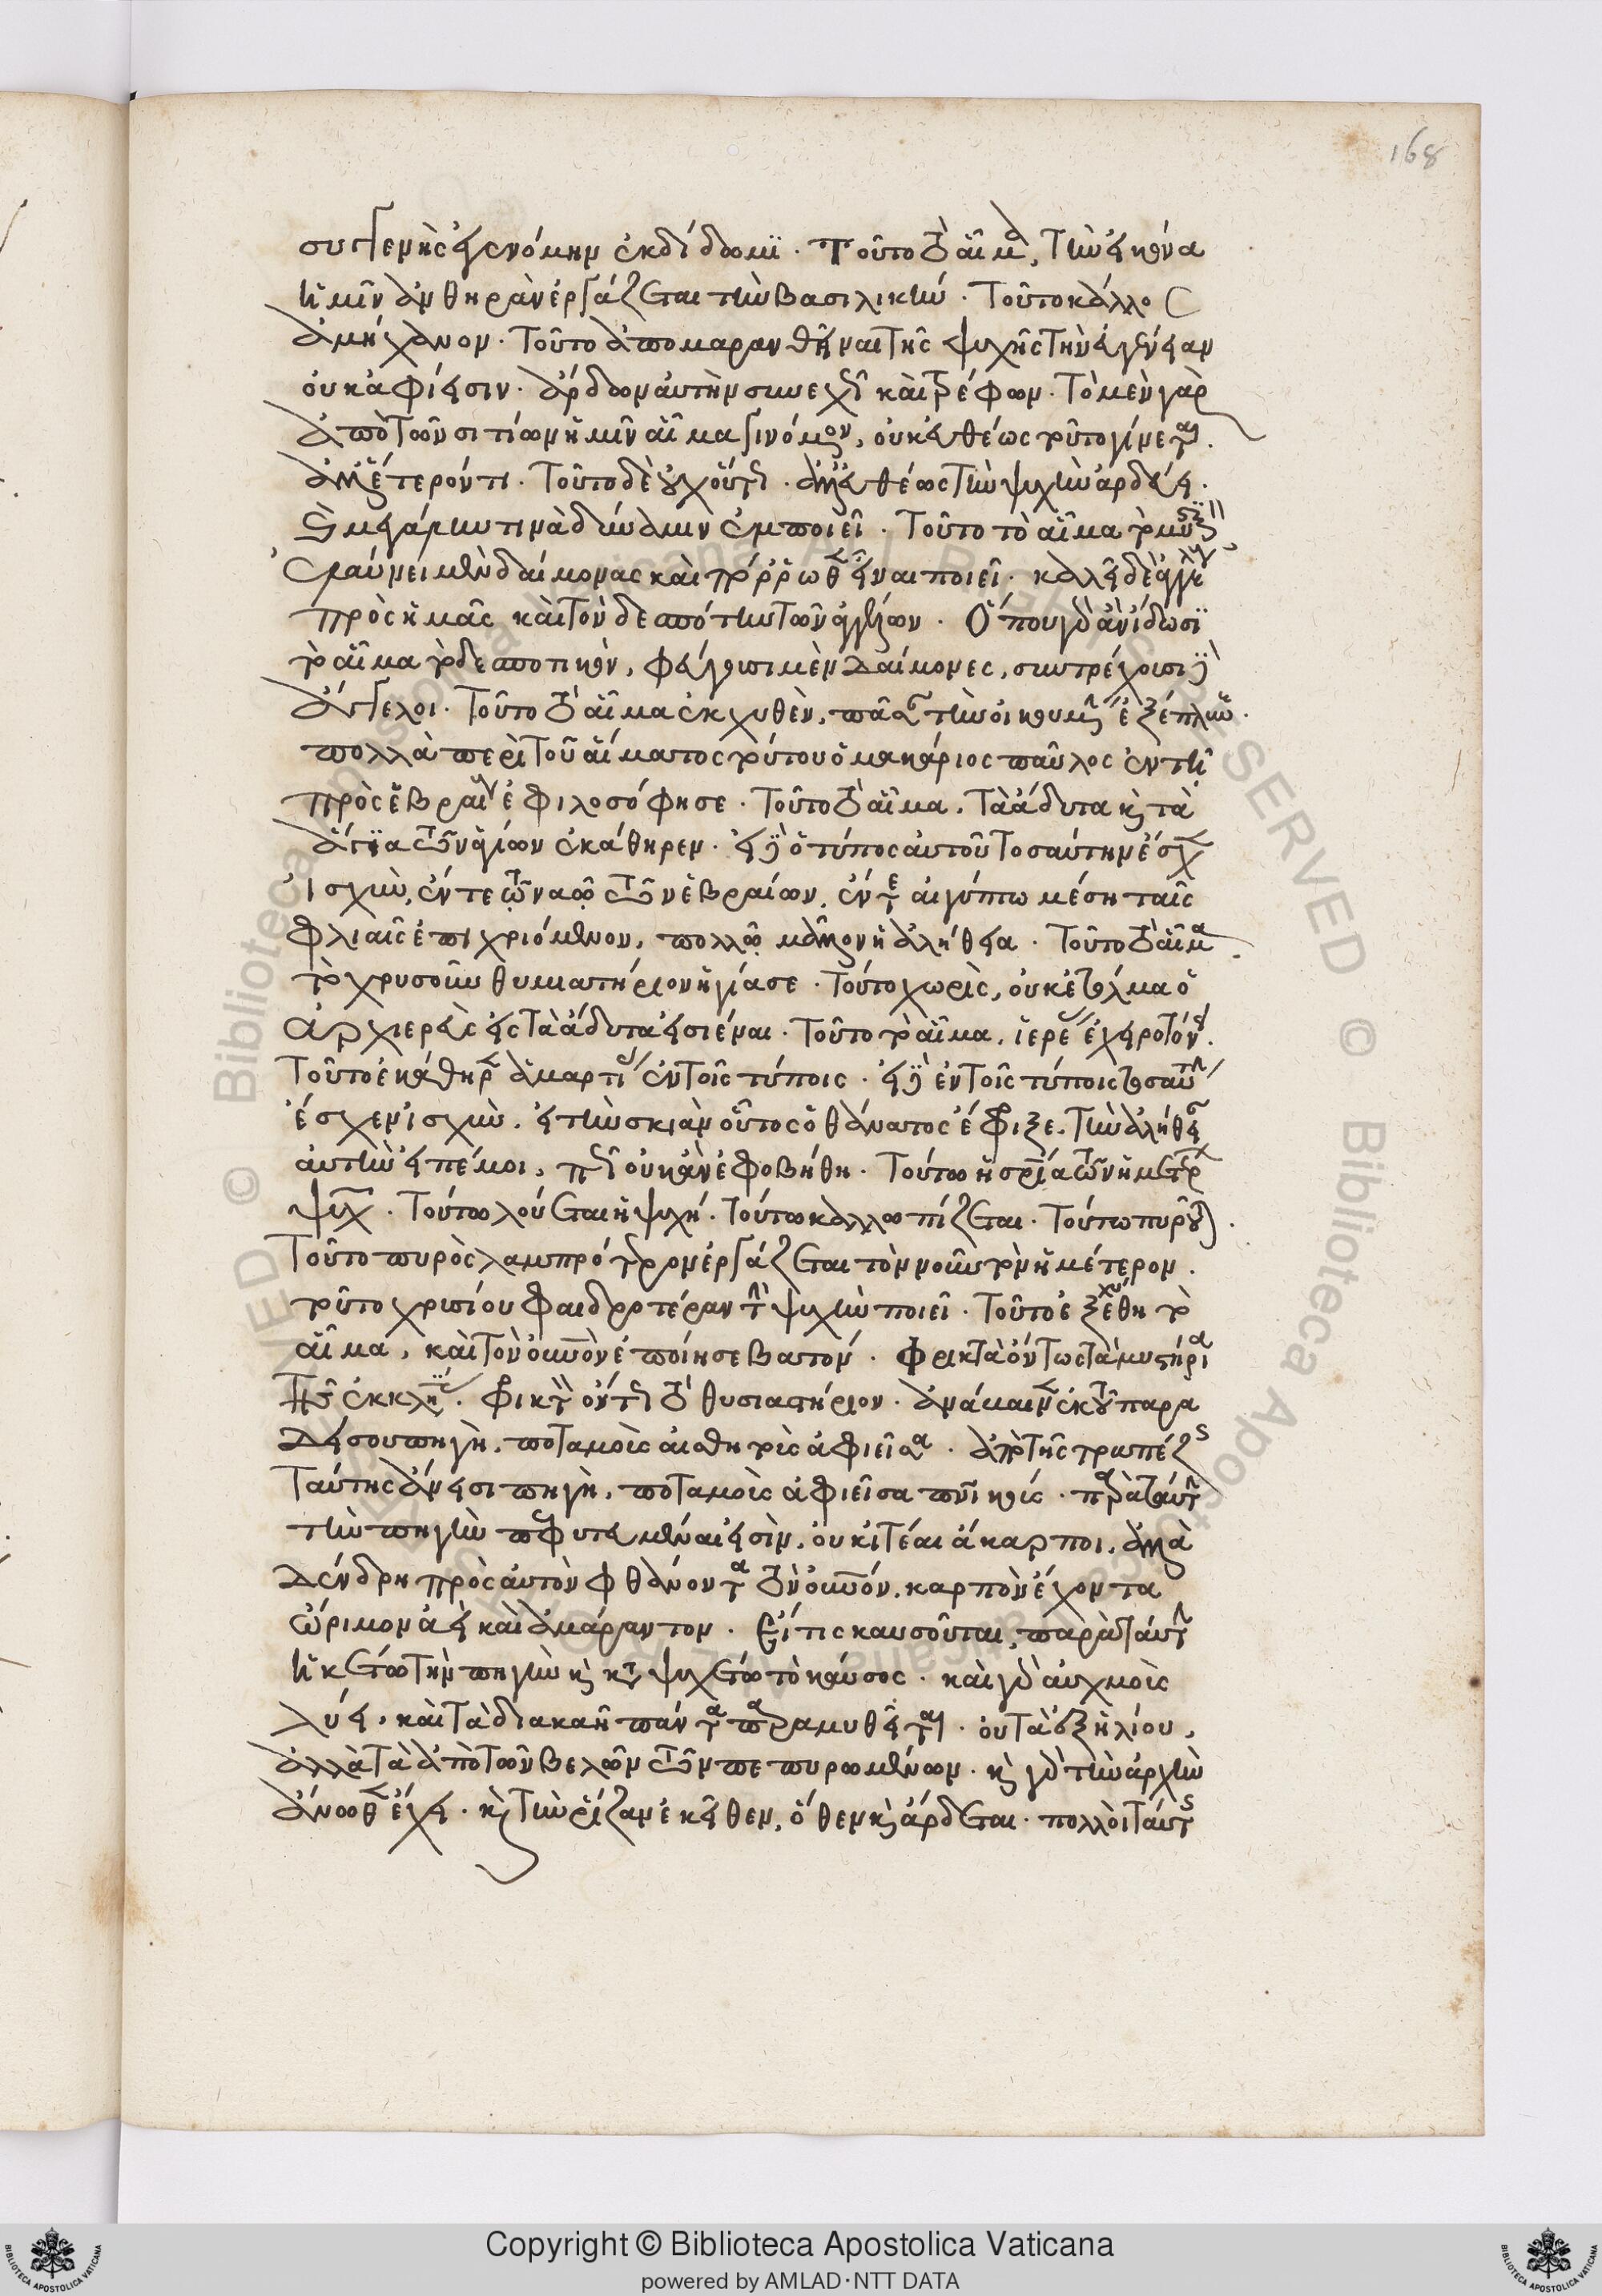 168
συγγενὴς εἰς νόμην ἐκδίδωμι. Τοῦτο τὸ αἷμα, τὴν εἰκόνα
ἡμῖν ἀνθηρὰν ἐργάζεται τὴν βασιλικήν. Τοῦτο κάλλος
ἀμήχανον. Τοῦτο ἀπομαρανθῆναι τῆς ψυχῆς τὴν εὐγένειαν
οὐκ ἀφίησιν. ἄρδων αὐτὴν συνεχῶς καὶ τρέφων. Τὸ μὲν γὰρ
ἀπὸ τῶν σιτίων ἡμῖν αἷμα γινόμενον, οὐκ εὐθέως τοῦτο γίνεται.
ἀλλ' ἕτερόν τι. Τοῦτο δὲ οὐχ οὕτως. ἀλλ' εὐθέως τὴν ψυχὴν ἀρδεύει.
καὶ μεγάλην τινὰ δύναμιν ἐμποιεῖ. Τοῦτο τὸ αἷμα τὸ μυστικὸν
ἐλαύνει μὲν δαίμονας καὶ πόρρωθεν εἶναι ποιεῖ. καλεῖ δὲ ἀγγέλους
πρὸς ἡμᾶς καὶ τὸν δεσπότην τῶν ἀγγέλων. Ὅπου γὰρ ἂν ἴδωσι
τὸ αἷμα τὸ δεσποτικόν, φεύγουσι μὲν δαίμονες, συντρέχουσι δὲ
ἄγγελοι. Τοῦτο τὸ αἷμα ἐκχυθὲν, πᾶσαν τὴν οἰκουμένην ἐξέπλυνε.
πολλὰ περὶ τοῦ αἵματος τούτου ὁ μακάριος παῦλος ἐν τῇ
πρὸς ἑβραίους ἐφιλοσόφησε. Τοῦτο τὸ αἷμα. Τὰ ἄδυτα καὶ τὰ
ἅγια τῶν ἁγίων ἐκάθηρεν. εἰ δὲ ὁ τύπος αὐτοῦ τοσαύτην ἔσχεν
ἰσχὺν, ἔν τε τῷ ναῷ τῶν ἑβραίων, ἔν τε αἰγύπτω μέση ταῖς
φλιαῖς ἐπιχριόμενον, πολλῷ μᾶλλον ἡ ἀλήθεια. Τοῦτο τὸ αἷμα
τὸ χρυσοῦν θυσιαστήριον ἡγίασε. Τούτου χωρὶς, οὐκ ἐτόλμα ὁ
ἀρχιερεὺς εἰς τὰ ἄδυτα εἰσιέναι. Τοῦτο τὸ αἷμα, ἱερεῖς ἐχειροτόνει.
Τοῦτο ἐκάθηρεν ἁμαρτίας ἐν τοῖς τύποις. εἰ δὲ ἐν τοῖς τύποις τοσαύτην
ἔσχεν ἰσχὺν. εἰ τὴν σκιὰν οὕτως ὁ θάνατος ἔφριξε. Τὴν ἀλήθειαν
αὐτὴν εἰπέ μοι, πῶς οὐκ ἂν ἐφοβήθη. Τοῦτο ἡ σωτηρία τῶν ἡμετέρων
ψυχῶν. Τούτω λούεται ἡ ψυχή. Τούτω καλλωπίζεται. Τούτω πυροῦται.
Τοῦτο πυρὸς λαμπρότερον ἐργάζεται τὸν νοῦν τὸν ἡμέτερον.
τοῦτο χρυσίου φαιδροτέραν τὴν ψυχὴν ποιεῖ. Τοῦτο ἐξεχύθη τὸ
αἷμα, καὶ τὸν οὐρανὸν ἐποίησε βατόν. Φρικτὰ ὄντως τὰ μυστήρια
τῆς ἐκκλησίας. Φρικτὸν ὄντως τὸ θυσιαστήριον. ἀνέβαινεν ἐκ τοῦ παρα
δείσου πηγὴ, ποταμοὺς αἰσθητοὺς ἀφιεῖσα. ἀπὸ τῆς τραπέζης
ταύτης ἄνεισι πηγὴ, ποταμοὺς ἀφιεῖσα πνευματικούς. παρὰ ταύτην
τὴν πηγὴν πεφυτευμέναι εἰσὶν, οὐκ ἰτέαι ἄκαρποι, ἀλλὰ
δένδρη πρὸς αὐτὸν φθάνοντα τὸν οὐρανόν, καρπὸν ἔχοντα
ὥριμον ἀεὶ καὶ ἀμάραντον. Εἴ τις καυσοῦται, παρὰ ταύτην
ἡκέτω τὴν πηγὴν καὶ καταψυχέτω τὸ καῦσος. καὶ γὰρ αὐχμοὺς
λύει, καὶ τὰ διακαῆ πάντα παραμυθεῖται. οὐ τὰ ἐξ ἡλίου,
ἀλλὰ τὰ ἀπὸ τῶν βελῶν τῶν πεπυρωμένων. καὶ γὰρ τὴν ἀρχὴν
ἄνωθεν ἔχει. καὶ τὴν ῥίζαν ἐκεῖθεν, ὅθεν καὶ ἄρδεται. πολλοὶ ταύτης
Copyright © Biblioteca Apostolica Vaticana
powered by AMLAD·NTT DATA